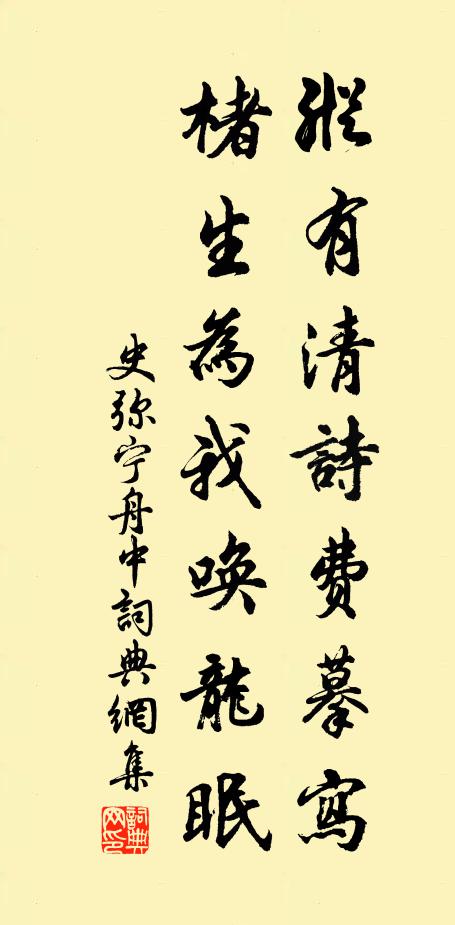 縱有清詩費摹寫
楮生為我喚龍眠
史弥宁舟中詞典網集
詞典网印